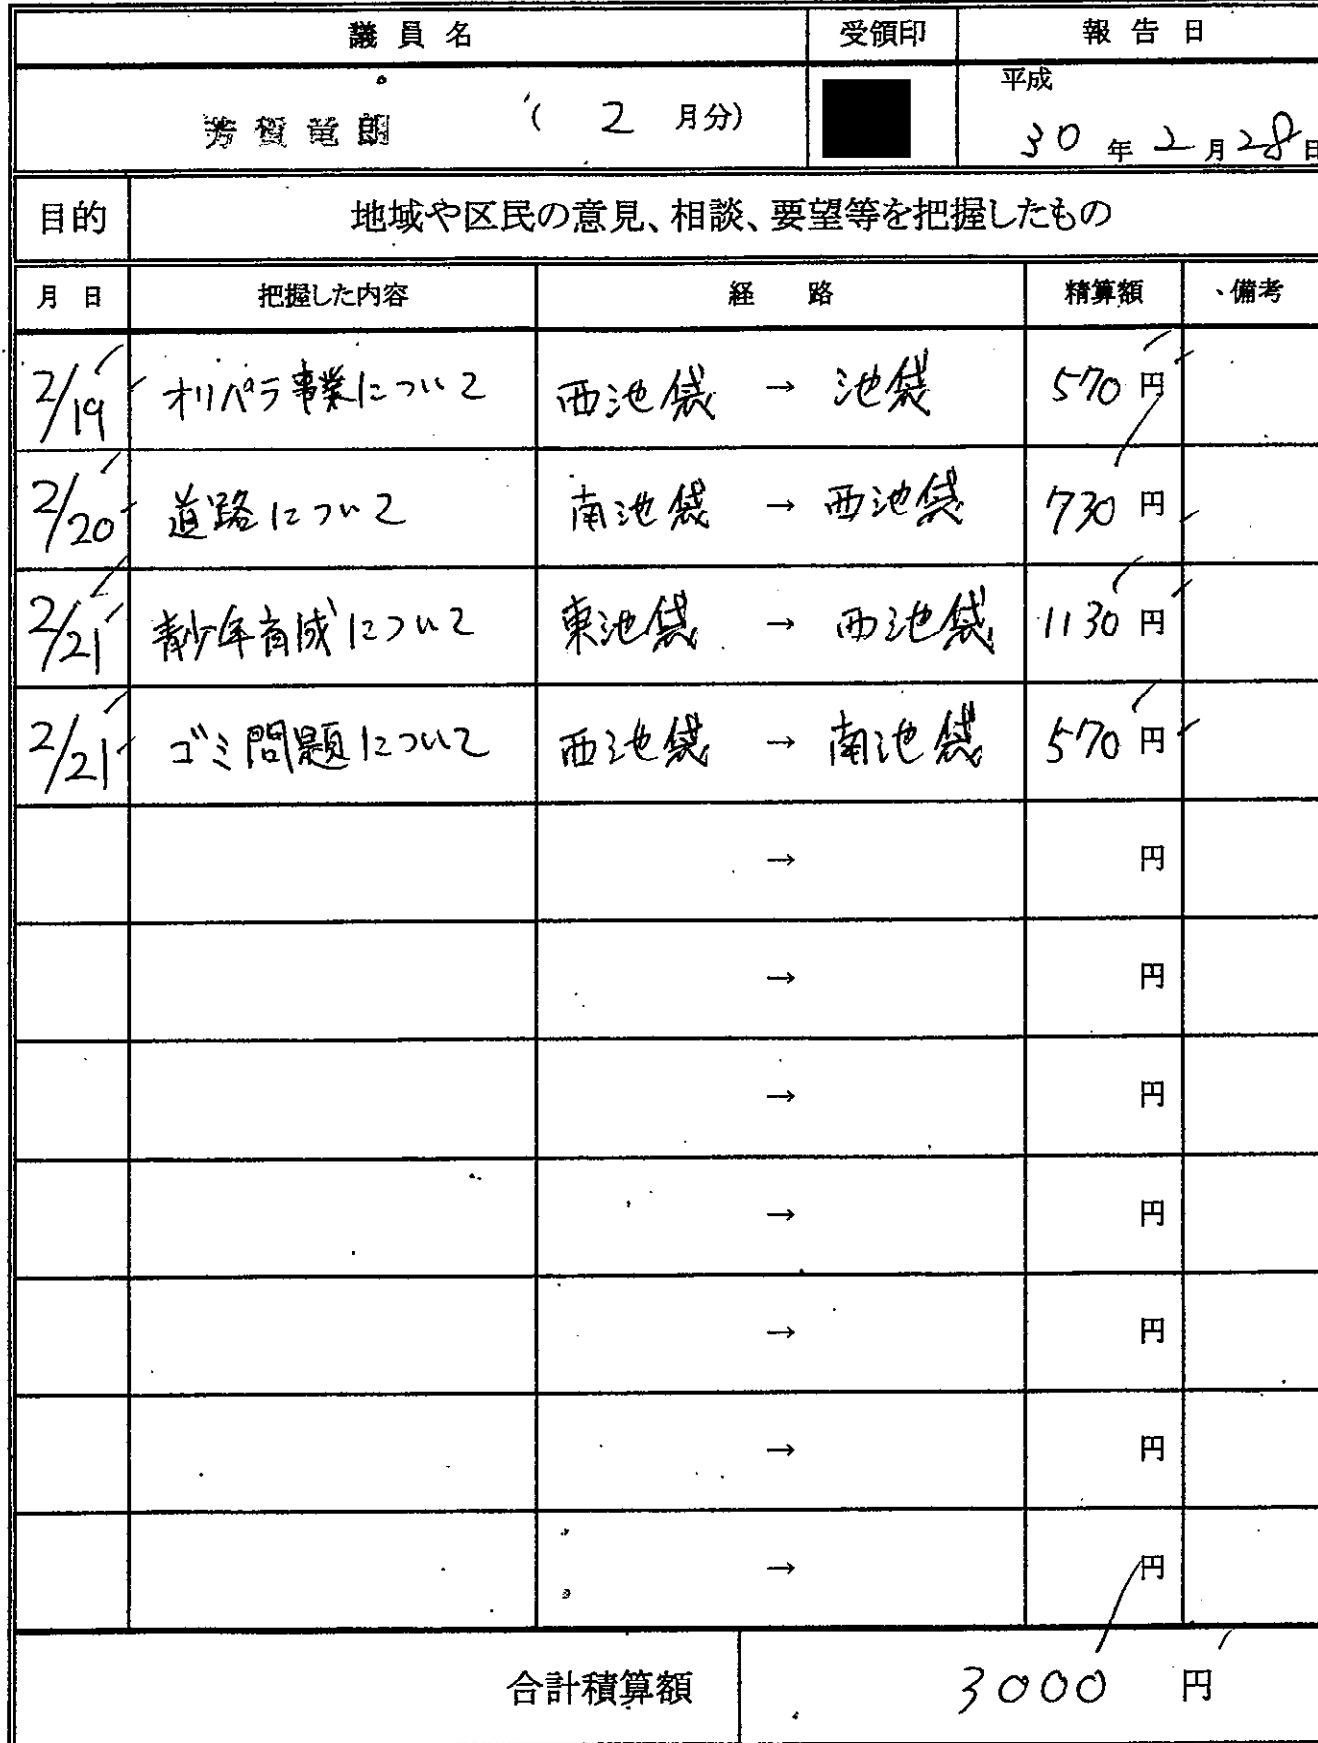 議員名 受領印 報告日
芳賀竜朗 ( 2 月分) 平成 30 年 2 月 28 日
目的 地域や区民の意見、相談、要望等を把握したもの
月日 把握した内容 経路 精算額 備考
2/19 オリパラ事業について 西池袋 → 池袋 570 円
2/20 道路について 南池袋 → 西池袋 730 円
2/21 青少年育成について 東池袋 → 西池袋 1130 円
2/21 ゴミ問題について 西池袋 → 南池袋 570 円
→ 円
→ 円
→ 円
→ 円
→ 円
→ 円
→ 円
合計積算額 3000 円